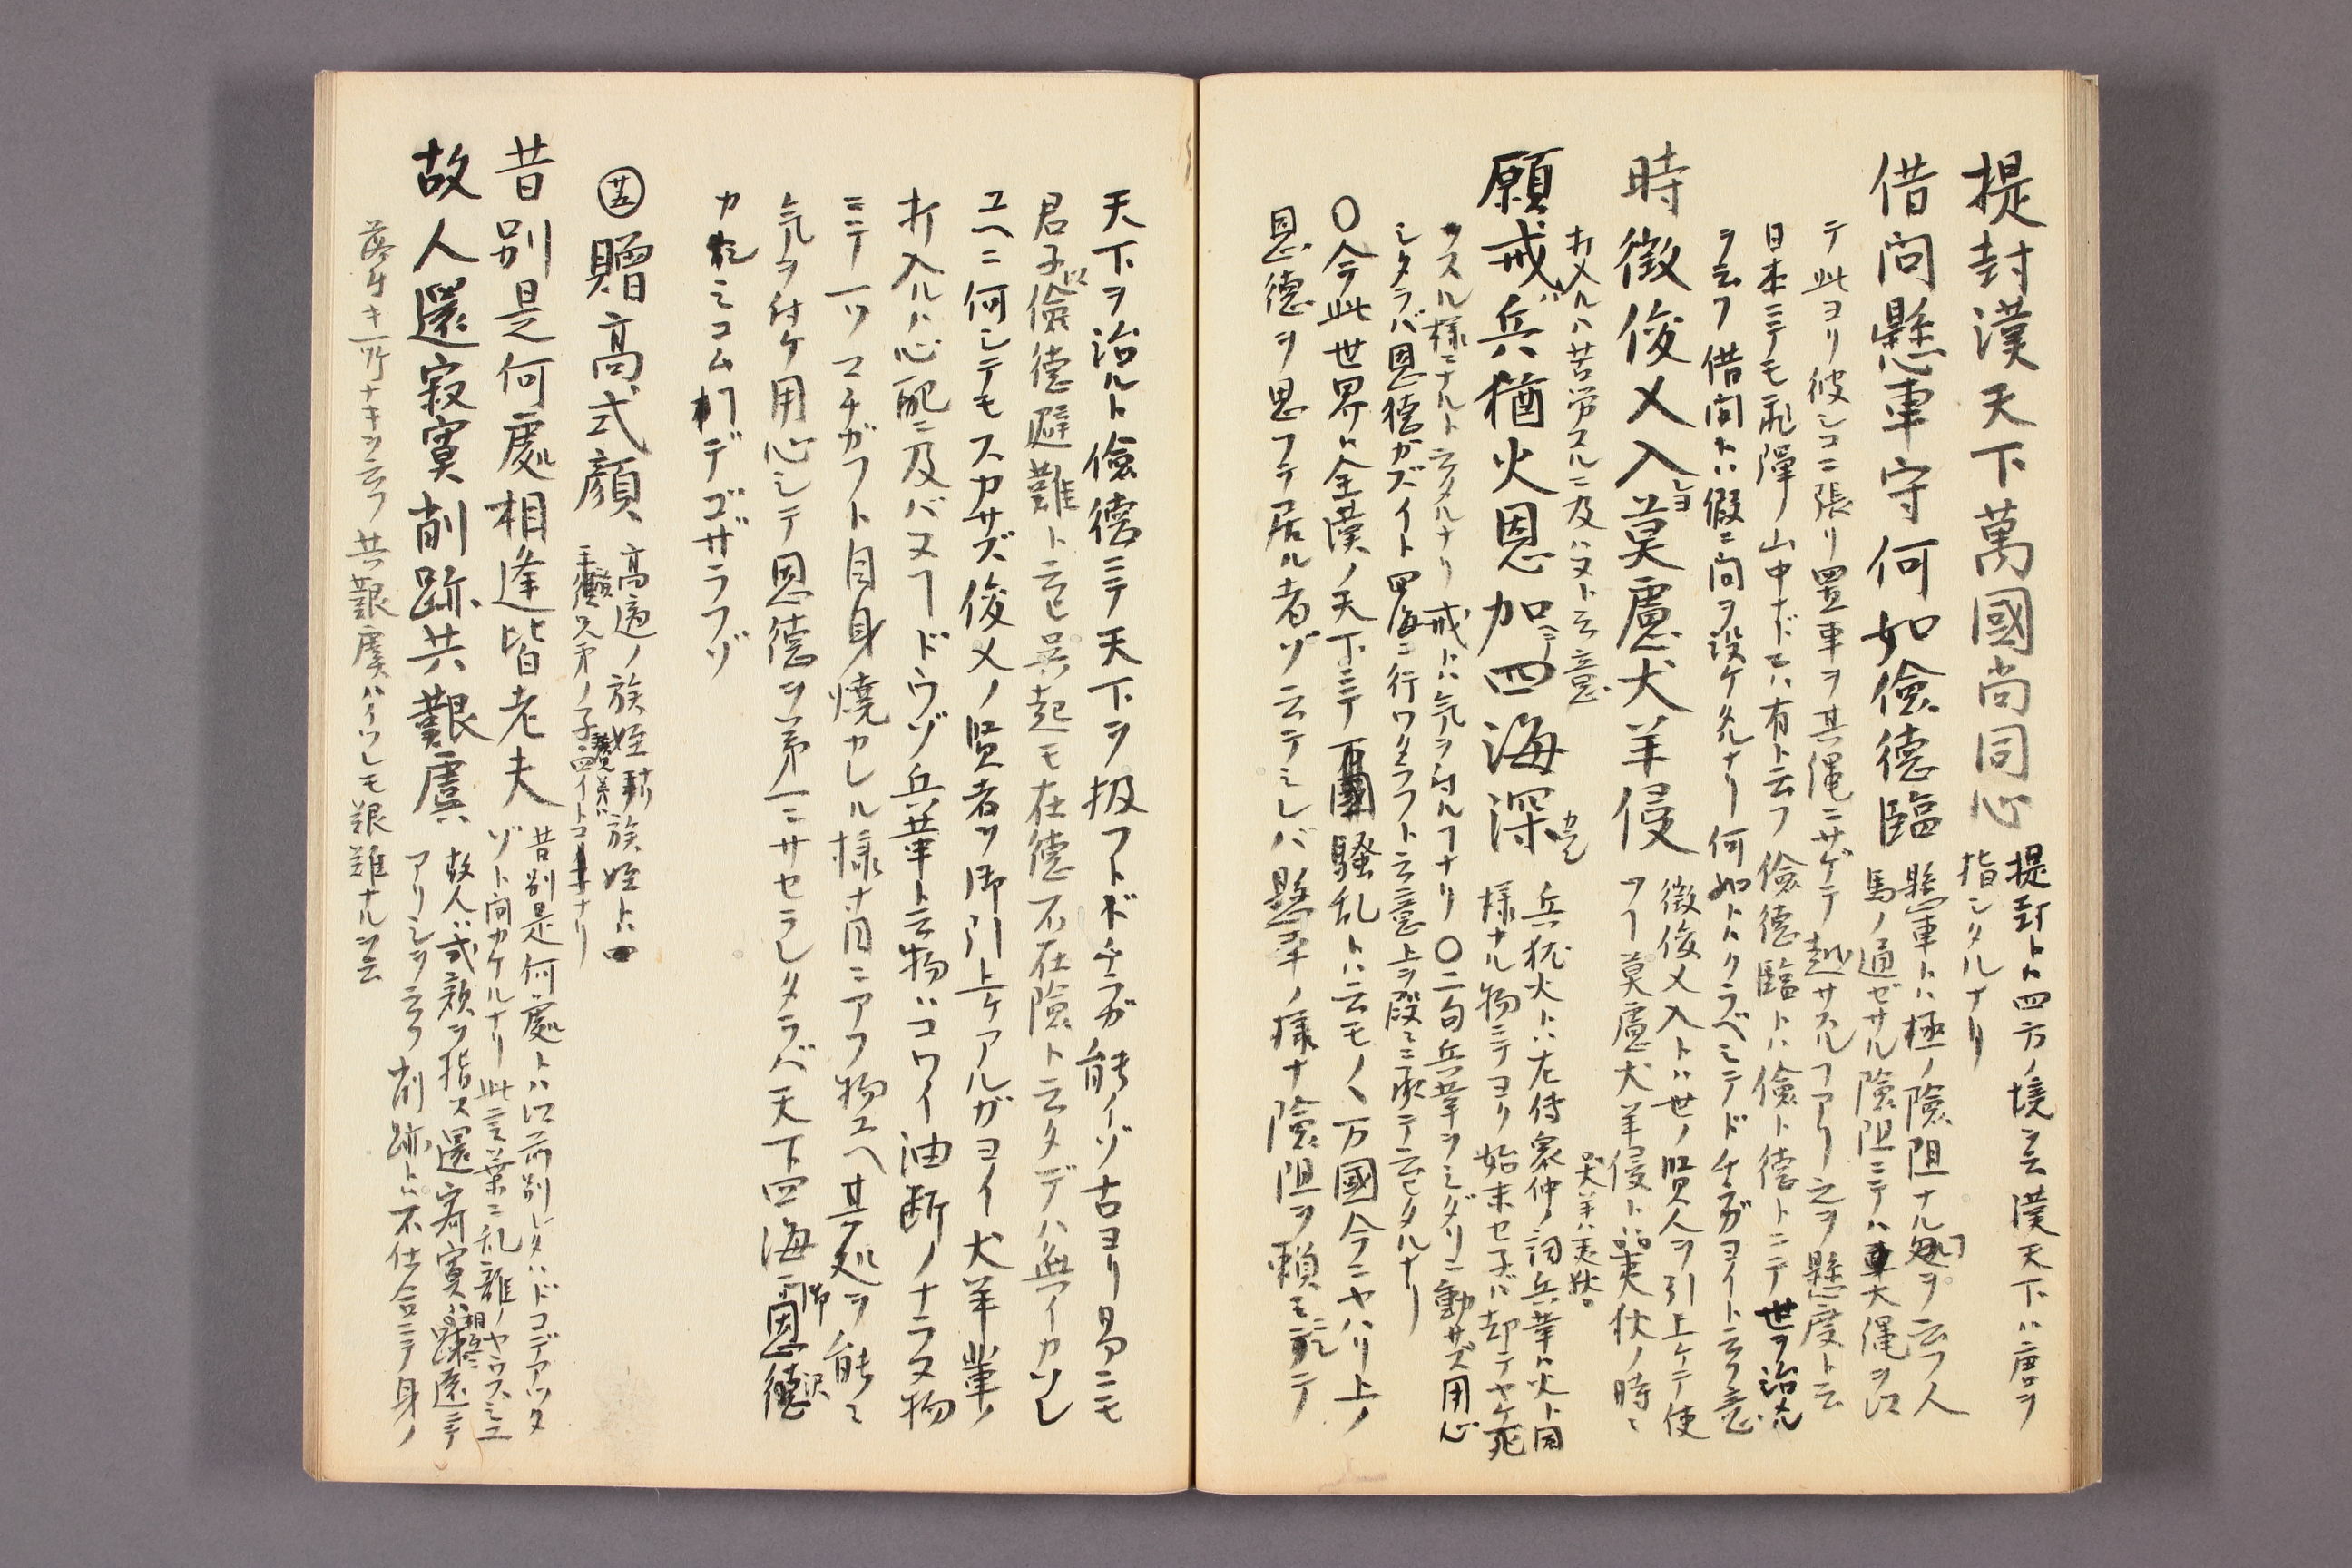 提封漢天下萬國尚同心
提封トハ四方ノ境ヲ云漢天下ハ唐ヲ
指シタルナリ
借問懸車守何如儉德臨
懸車トハ極ノ險阻ナル処ヲ云フ人
馬ノ通ゼザル險阻ニテハ車大縄ヲ以
テ此ヨリ彼シコニ張リ置車ヲ其縄ニサゲテ越サスルヿアリ之ヲ懸度ト云
日本ニテモ飛騨ノ山中ナドデハ有ト云フ儉德臨トハ儉ト德トニテ世ヲ治ル
ヲ云フ借問トハ假ニ問ヲ設ケタルナリ何如トハクラベミテドチラガヨイト云フ意
時徴俊乂入莫慮犬羊侵
徴俊乂入トハ世ノ賢人ヲ引上ケテ使
フヿ莫慮犬羊侵トハ夷狄ノ時々
犬羊ハ夷狄
打入ルハ苦労スルニ及ハヌト云意
願戒兵猶火恩加四海深
兵犹火トハ左傳衆仲ノ詞兵革ト火ト同
様ナル物ニテヨク始末セネバ却テヤケ死
ヲスル様ニナルト云タルナリ戒トハ気ヲ付ルヿナリ〇二句兵革ヲミダリニ動サズ用心
シタラバ恩德ガズイト四海ニ行ワタラフト云意上ヲ段々ニ承テ云タルナリ
〇今此世界ハ全漢ノ天下ニテ萬國騒乱トハ云モノヽ万國今ニヤハリ上ノ
恩德ヲ思フテ居ル者ゾ云テミレバ懸車ノ様ナ險阻ヲ頼ミニテ
天下ヲ治ルト儉德ニテ天下ヲ扱フトドチラガ能イゾ古ヨリ易ニモ
君子以儉德避難ト云ヒ呉起モ在德不在險ト云タデハ無イカソレ
ユヘニ何シテモスカサズ俊乂ノ賢者ヲ御引上ケアルガヨイ犬羊輩ノ
打入ルハ心配ニ及バヌヿドウゾ兵革ト云物ハコワイ油断ノナラヌ物
ニテ一ツマチガフト自身焼カレル様ナ目ニアフ物ユヘ其処ヲ能々
気ヲ付ケ用心シテ恩德ヲ第一ニサセラレタラバ天下四海ニ御恩德
沢
カ
ミコム
デゴザラフゾ
㊄贈高式顔
高適ノ族姪
族姪トハ
兄弟ノ子
ナリ
昔別是何處相逢皆老夫
昔別是何處トハ以前別レタハドコデアツタ
ゾト問カケルナリ此言葉ニ乱離ノヤウスミユ
故人還寂寞削跡共艱虞
故人ハ式顔ヲ指ス還寂寞ハ
遠ニテ
アリシヲ云フ削跡トハ不仕合ニテ身ノ
落付キ所ナキヲ云フ共艱虞ハイツレモ艱難ナルヲ云